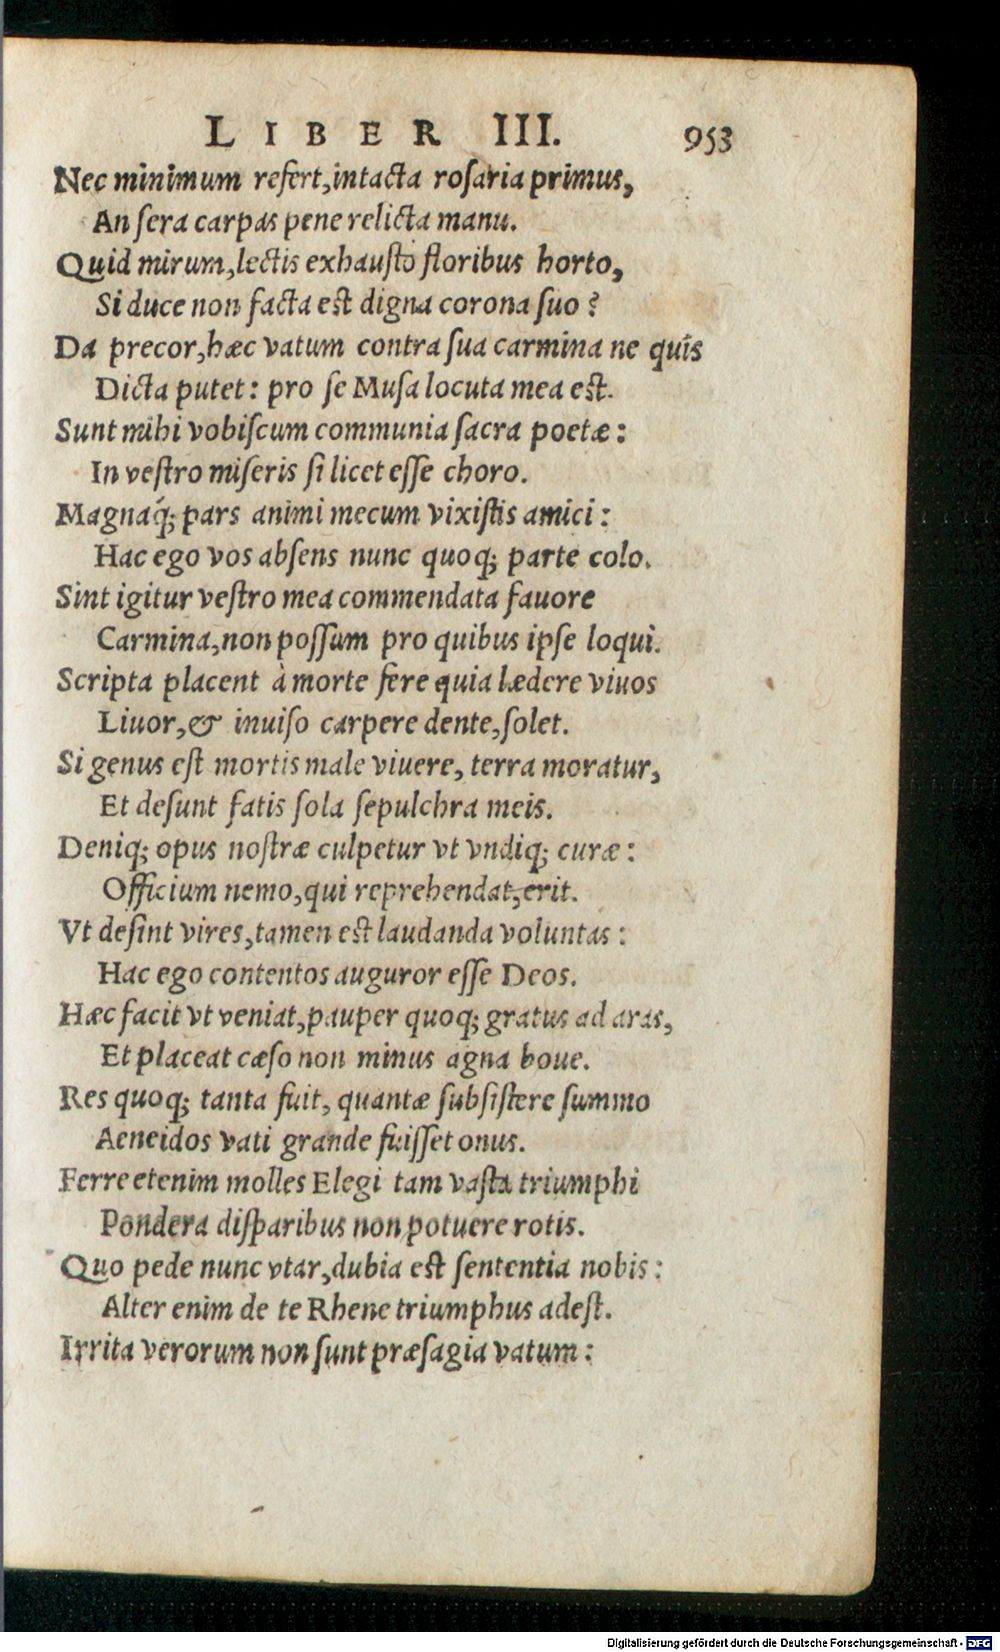 LIBER III. 953
Nec minimum refert, intacta rosaria primus,
An sera carpas pene relicta manu.
Quid mirum, lectis exhausto floribus horto,
Si duce non facta est digna corona suo?
Da precor, hæc vatum contra sua carmina ne quis
Dicta putet: pro se Musa locuta mea est.
Sunt mihi vobiscum communia sacra poetæ:
In vestro miseris si licet esse choro.
Magnaq́; pars animi mecum vixistis amici:
Hac ego vos absens nunc quoq; parte colo.
Sint igitur vestro mea commendata fauore
Carmina, non possum pro quibus ipse loqui.
Scripta placent à morte fere quia lædere viuos
Liuor, & inuiso carpere dente, solet.
Si genus est mortis male viuere, terra moratur,
Et desunt fatis sola sepulchra meis.
Deniq; opus nostræ culpetur vt vndiq; curæ:
Officium nemo, qui reprehendat, erit.
Vt desint vires, tamen est laudanda voluntas:
Hac ego contentos auguror esse Deos.
Hæc facit vt veniat, pauper quoq; gratus ad aras,
Et placeat cæso non minus agna boue.
Res quoq; tanta fuit, quantæ subsistere summo
Aeneidos vati grande fuisset onus.
Ferre etenim molles Elegi tam vasta triumphi
Pondera disparibus non potuere rotis.
Quo pede nunc vtar, dubia est sententia nobis:
Alter enim de te Rhene triumphus adest.
Irrita verorum non sunt præsagia vatum:
Digitalisierung gefördert durch die Deutsche Forschungsgemeinschaft - DFG